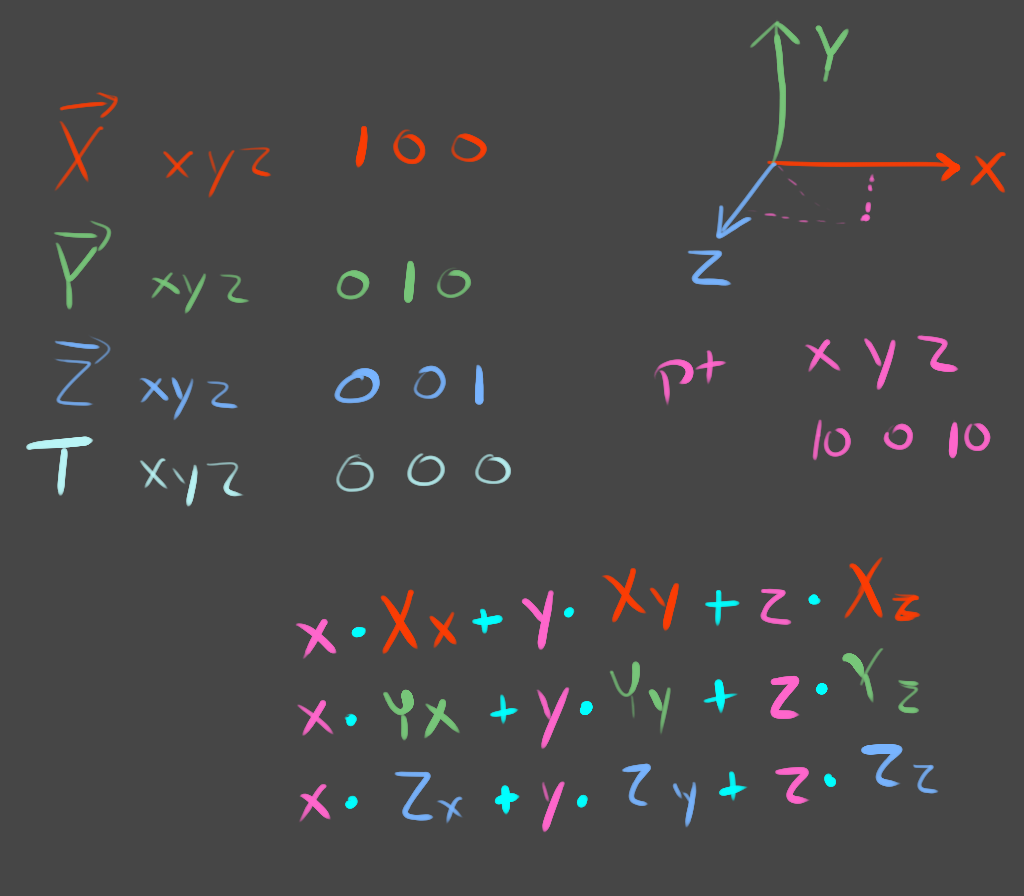 Y
X xyz 100
X
Y xyz 010
Z
Z xyz 001
pt xyz
10 0 10
T xyz 000
x·Xx + y·Xy + z·Xz
x·Yx + y·Yy + z·Yz
x·Zx + y·Zy + z·Zz